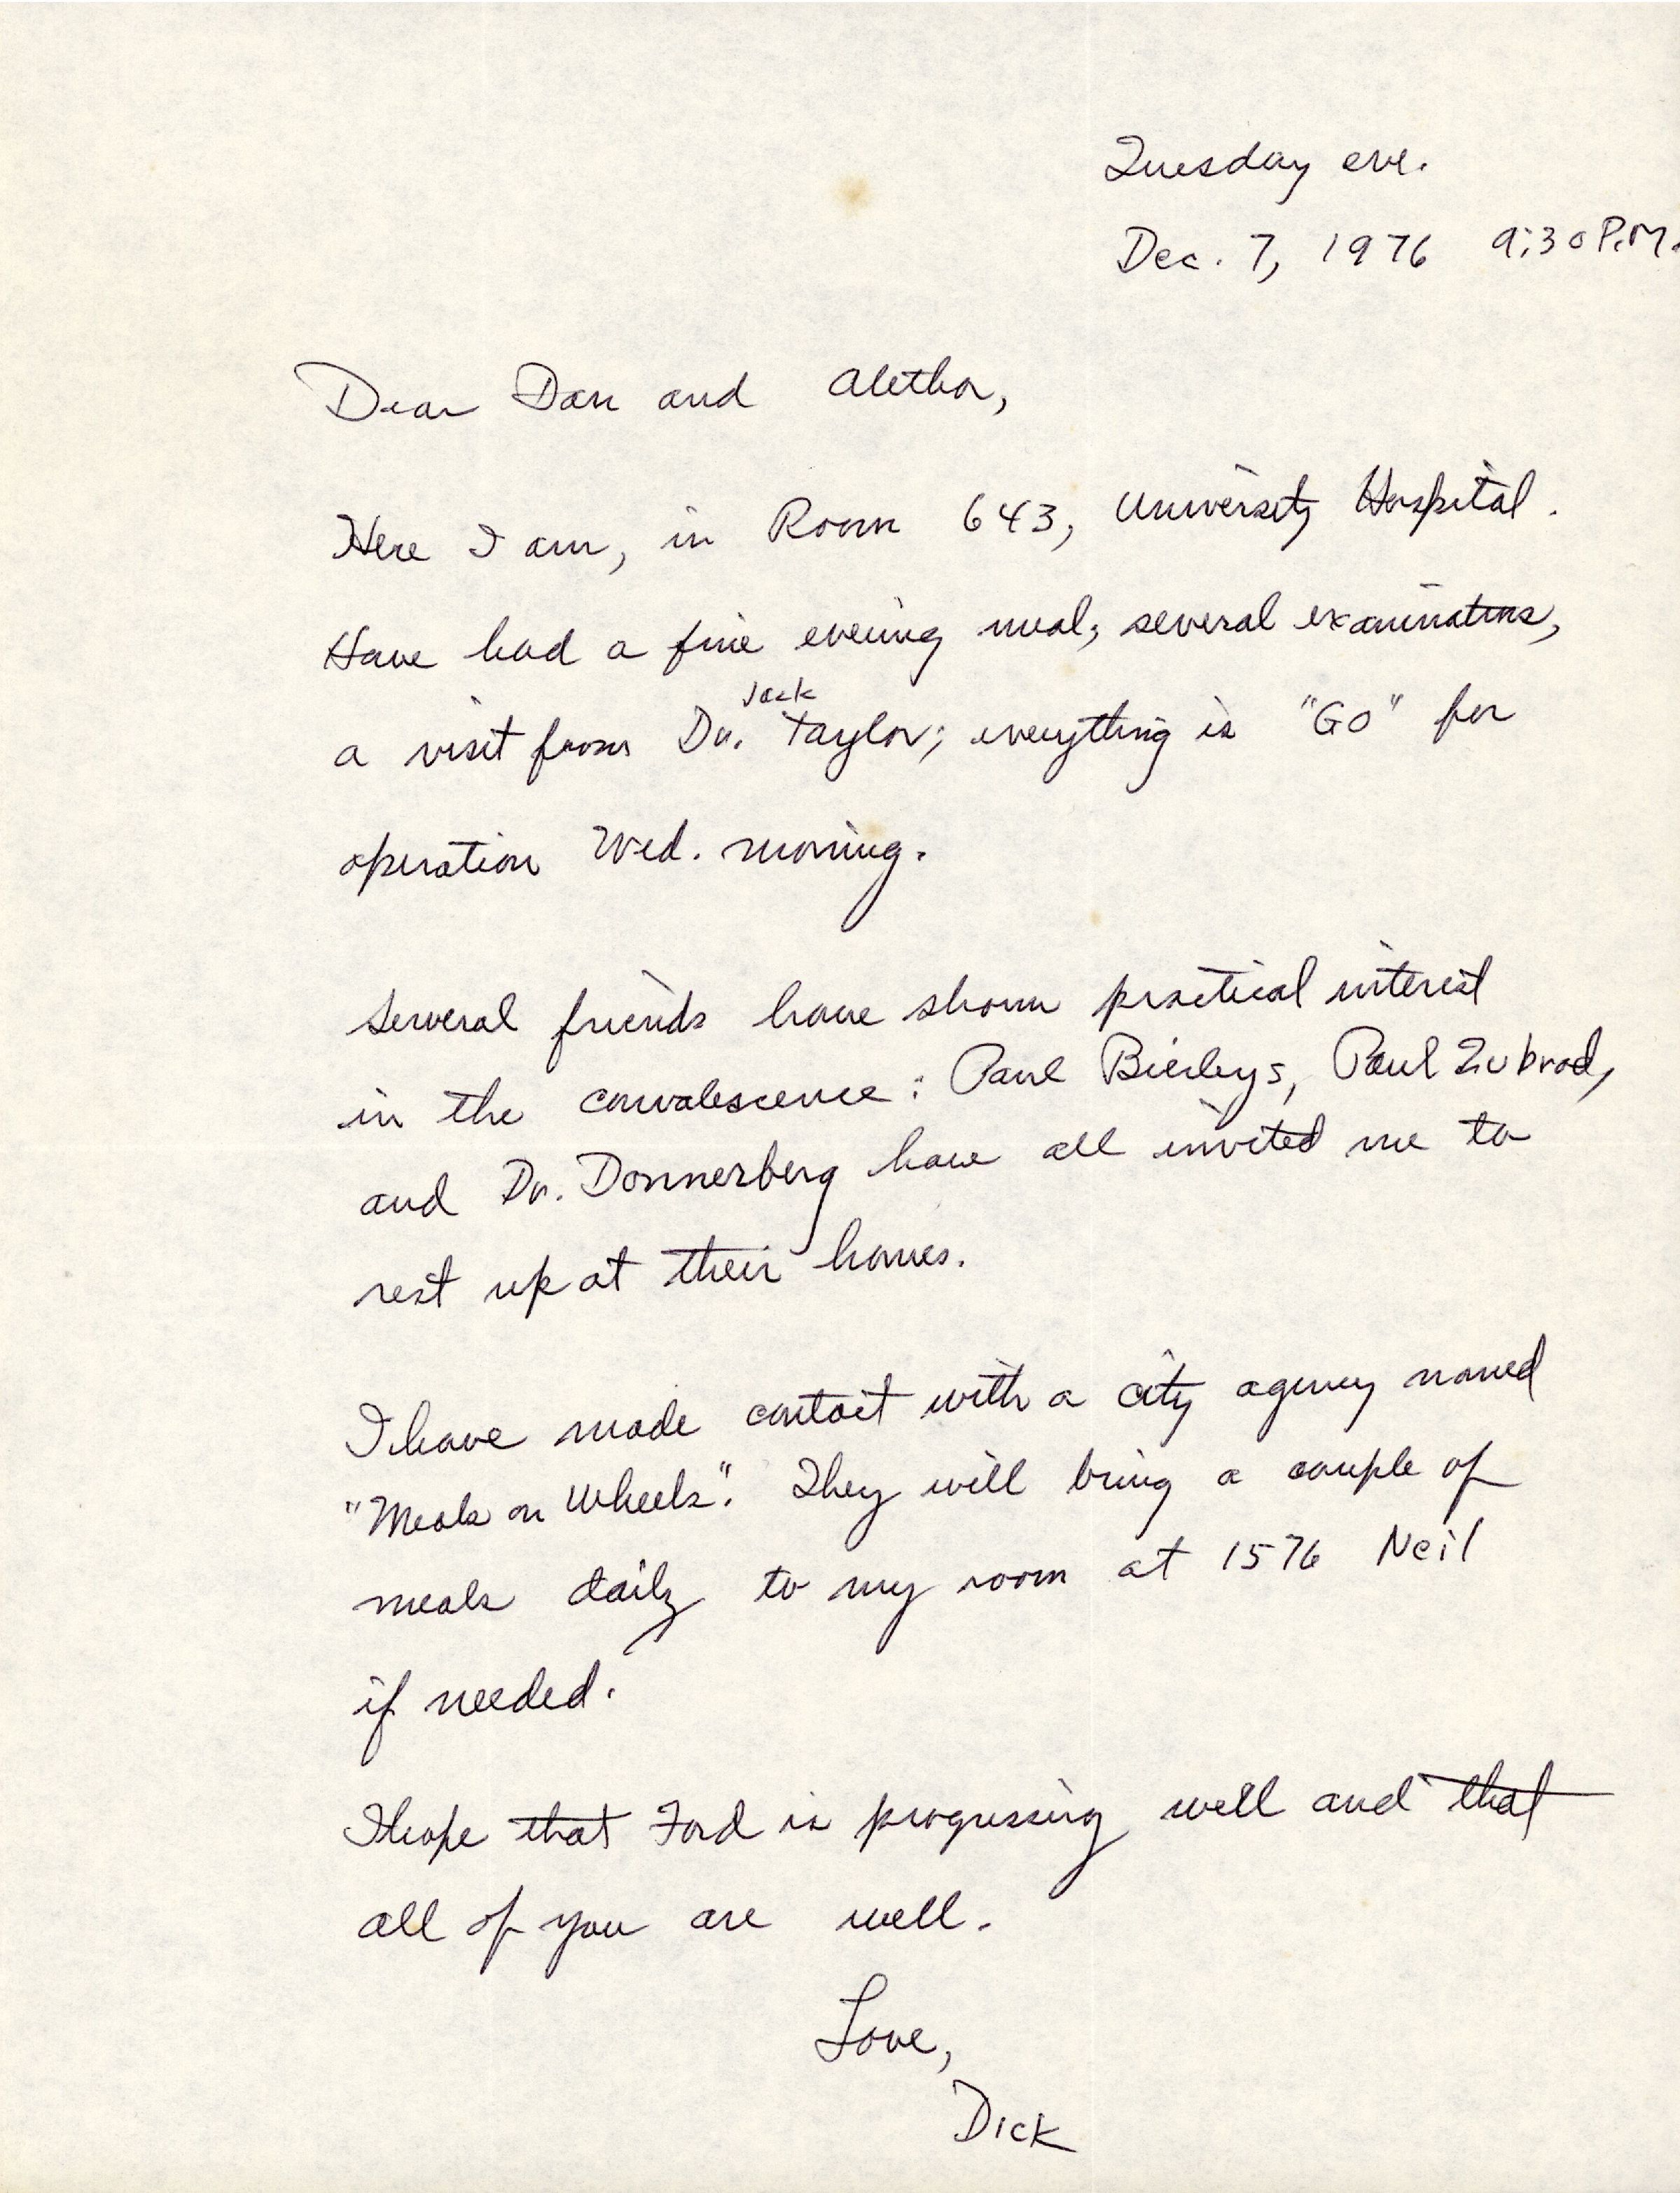 Tuesday eve.
Dec. 7, 1976 9:30 P.M.
Dear Dan and Aletha,
Here I am, in Room 643, University Hospital.
Have had a fine evening meal; several examinations,
Jack
a visit from Dr. Taylor; everything is "GO" for
operation Wed. morning.
Several friends have shown practical interest
in the convalescence: Paul Bierleys, Paul Zubrod,
and Dr. Donnerberg have all invited me to
rest up at their homes.
I have made contact with a city agency named
"Meals on Wheels". They will bring a couple of
meals daily to my room at 1576 Neil
if needed.
I hope that Ford is progressing well and that
all of you are well.
Love,
Dick